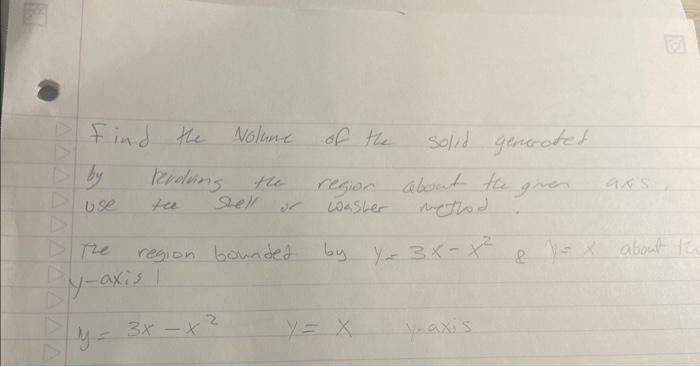 Find the Volume of the solid generated
by revolving the region about the given axis.
use the Shell or washer method.
The region bounded by y = 3x - x² & y = x about the
y-axis!
y = 3x - x² y = x y-axis